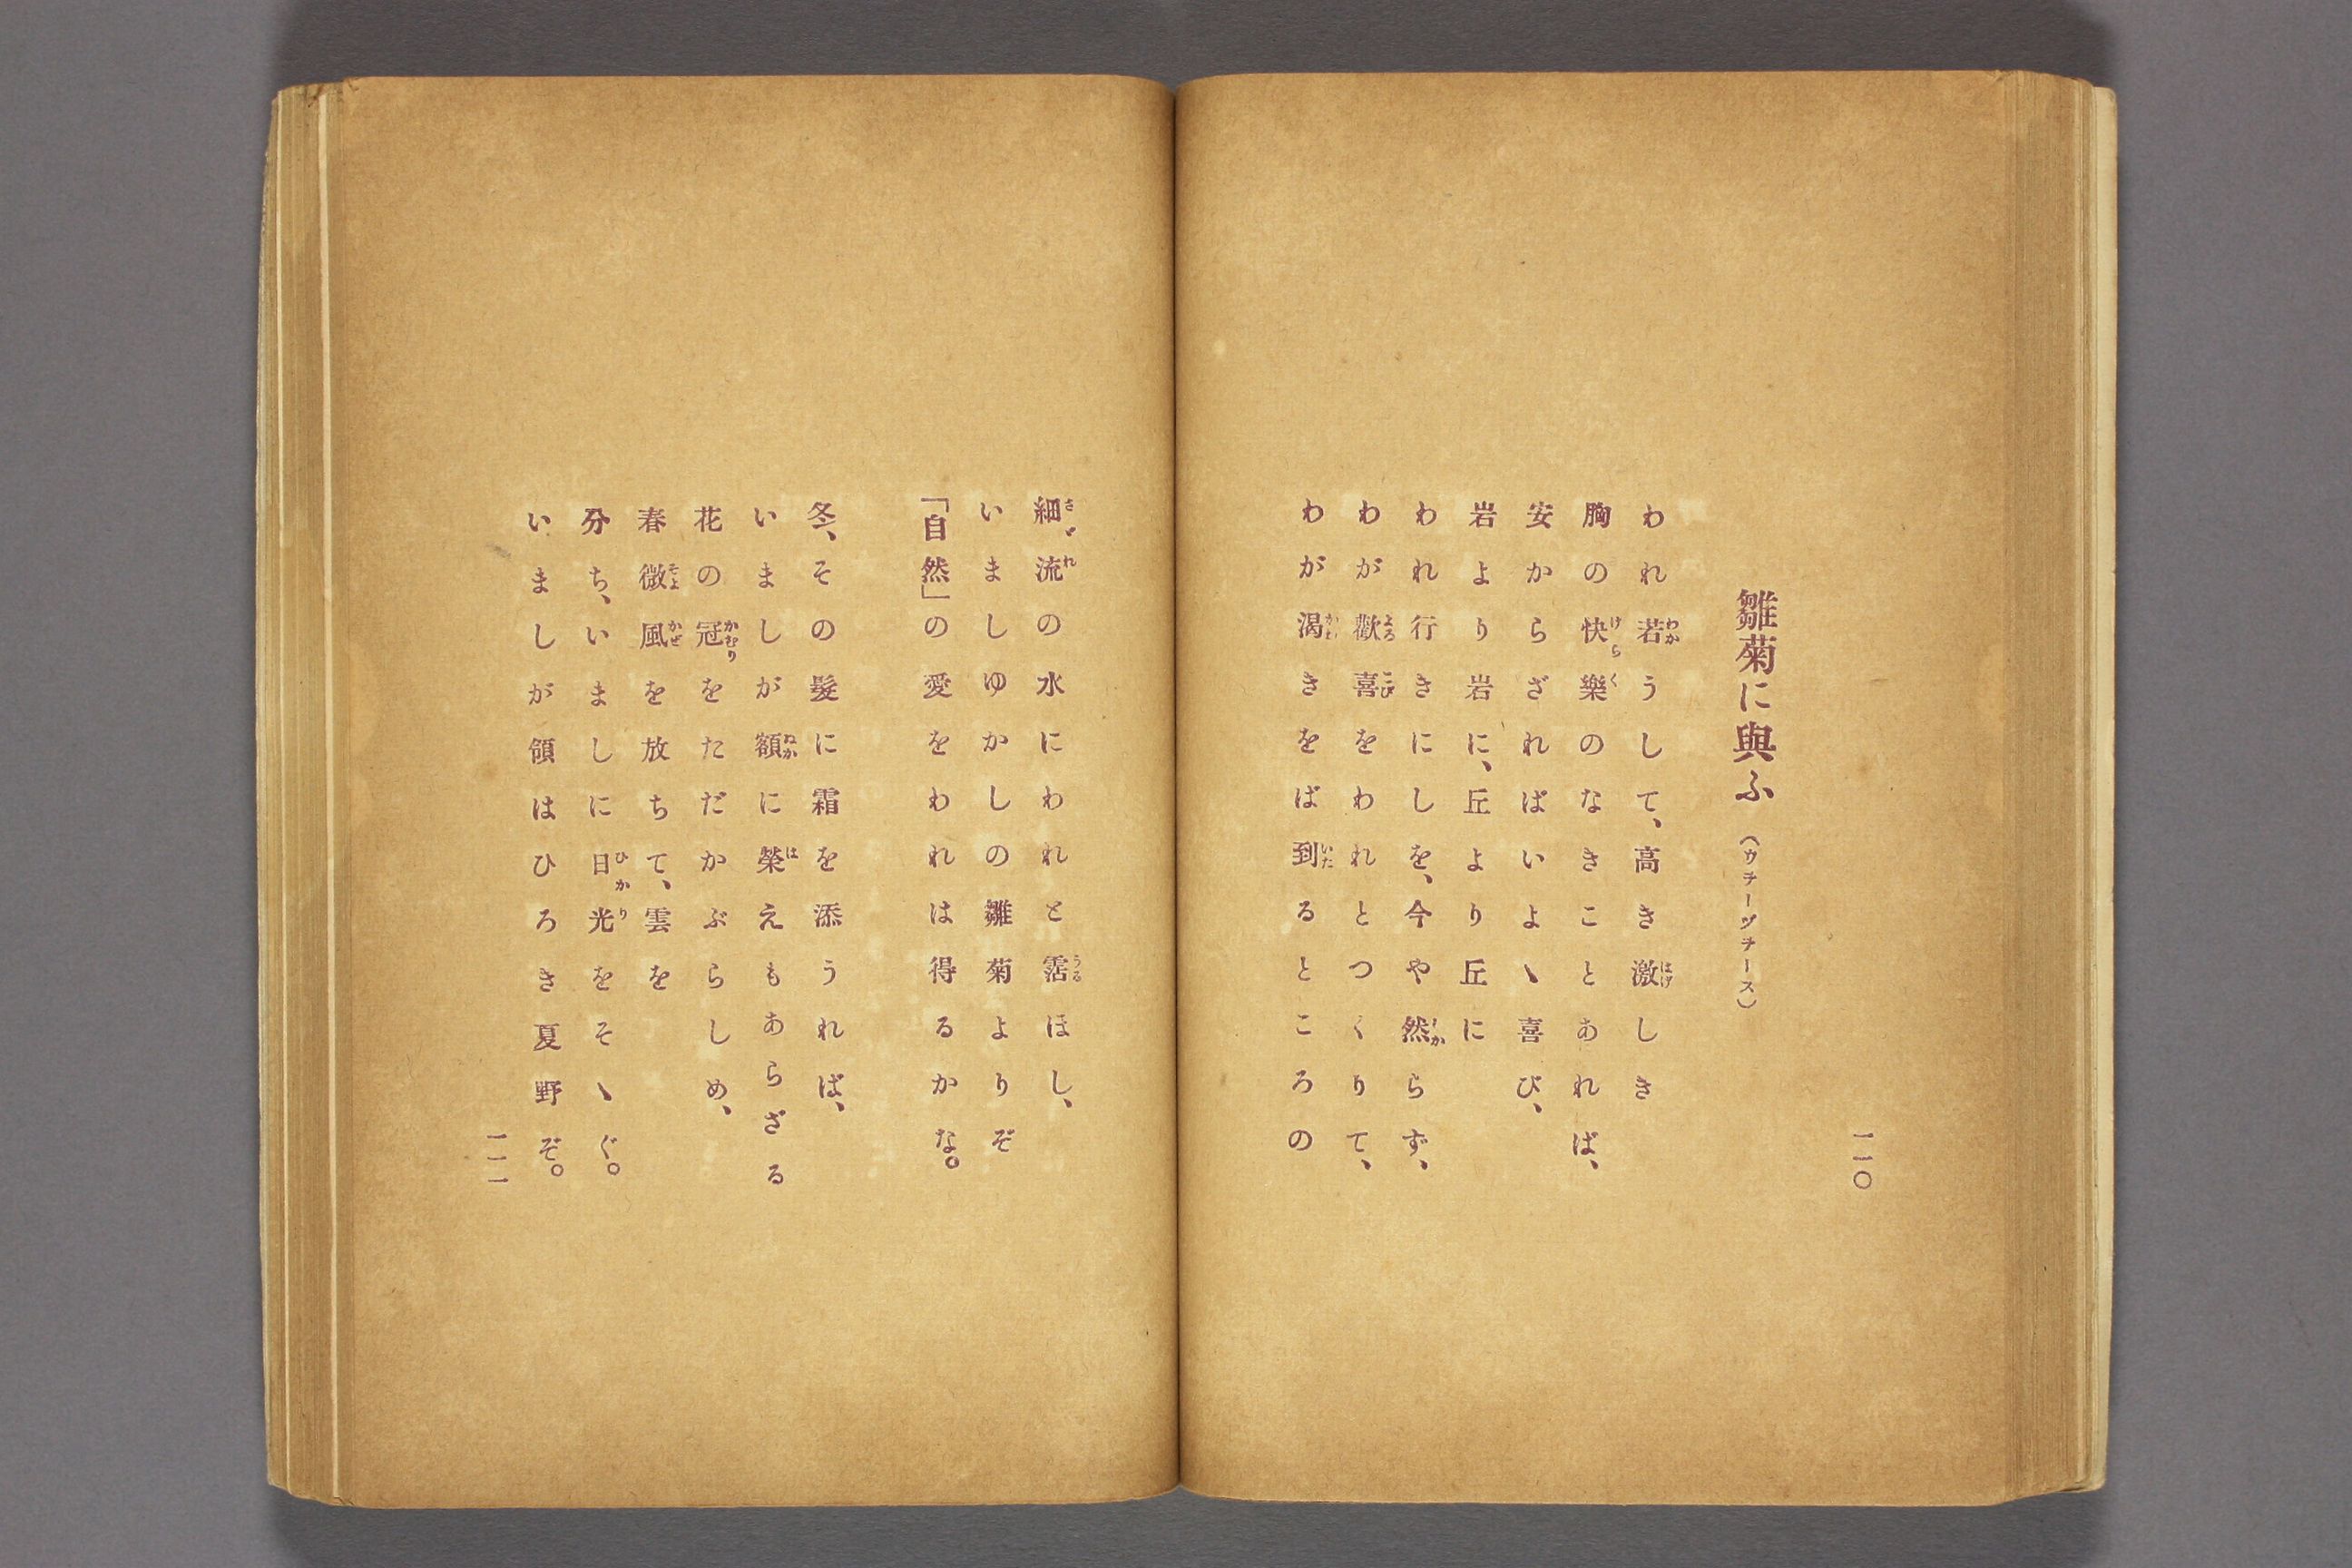 一一〇
雛菊に與ふ（ウチーヅチース）
われ若うして、高き激しき
胸の快樂のなきことあれば、
安からざればいよヽ喜び、
岩より岩に、丘より丘に
われ行きにしを、今や然らず、
わが歡喜をわれとつくりて、
わが渇きをば到るところの
細流の水にわれと霑ほし、
いましゆかしの雛菊よりぞ
「自然」の愛をわれは得るかな。
冬、その髮に霜を添うれば、
いましが額に榮えもあらざる
花の冠をただかぶらしめ、
春微風を放ちて、雲を
分ち、いましに日光をそヽぐ。
いましが領はひろき夏野ぞ。
一一一